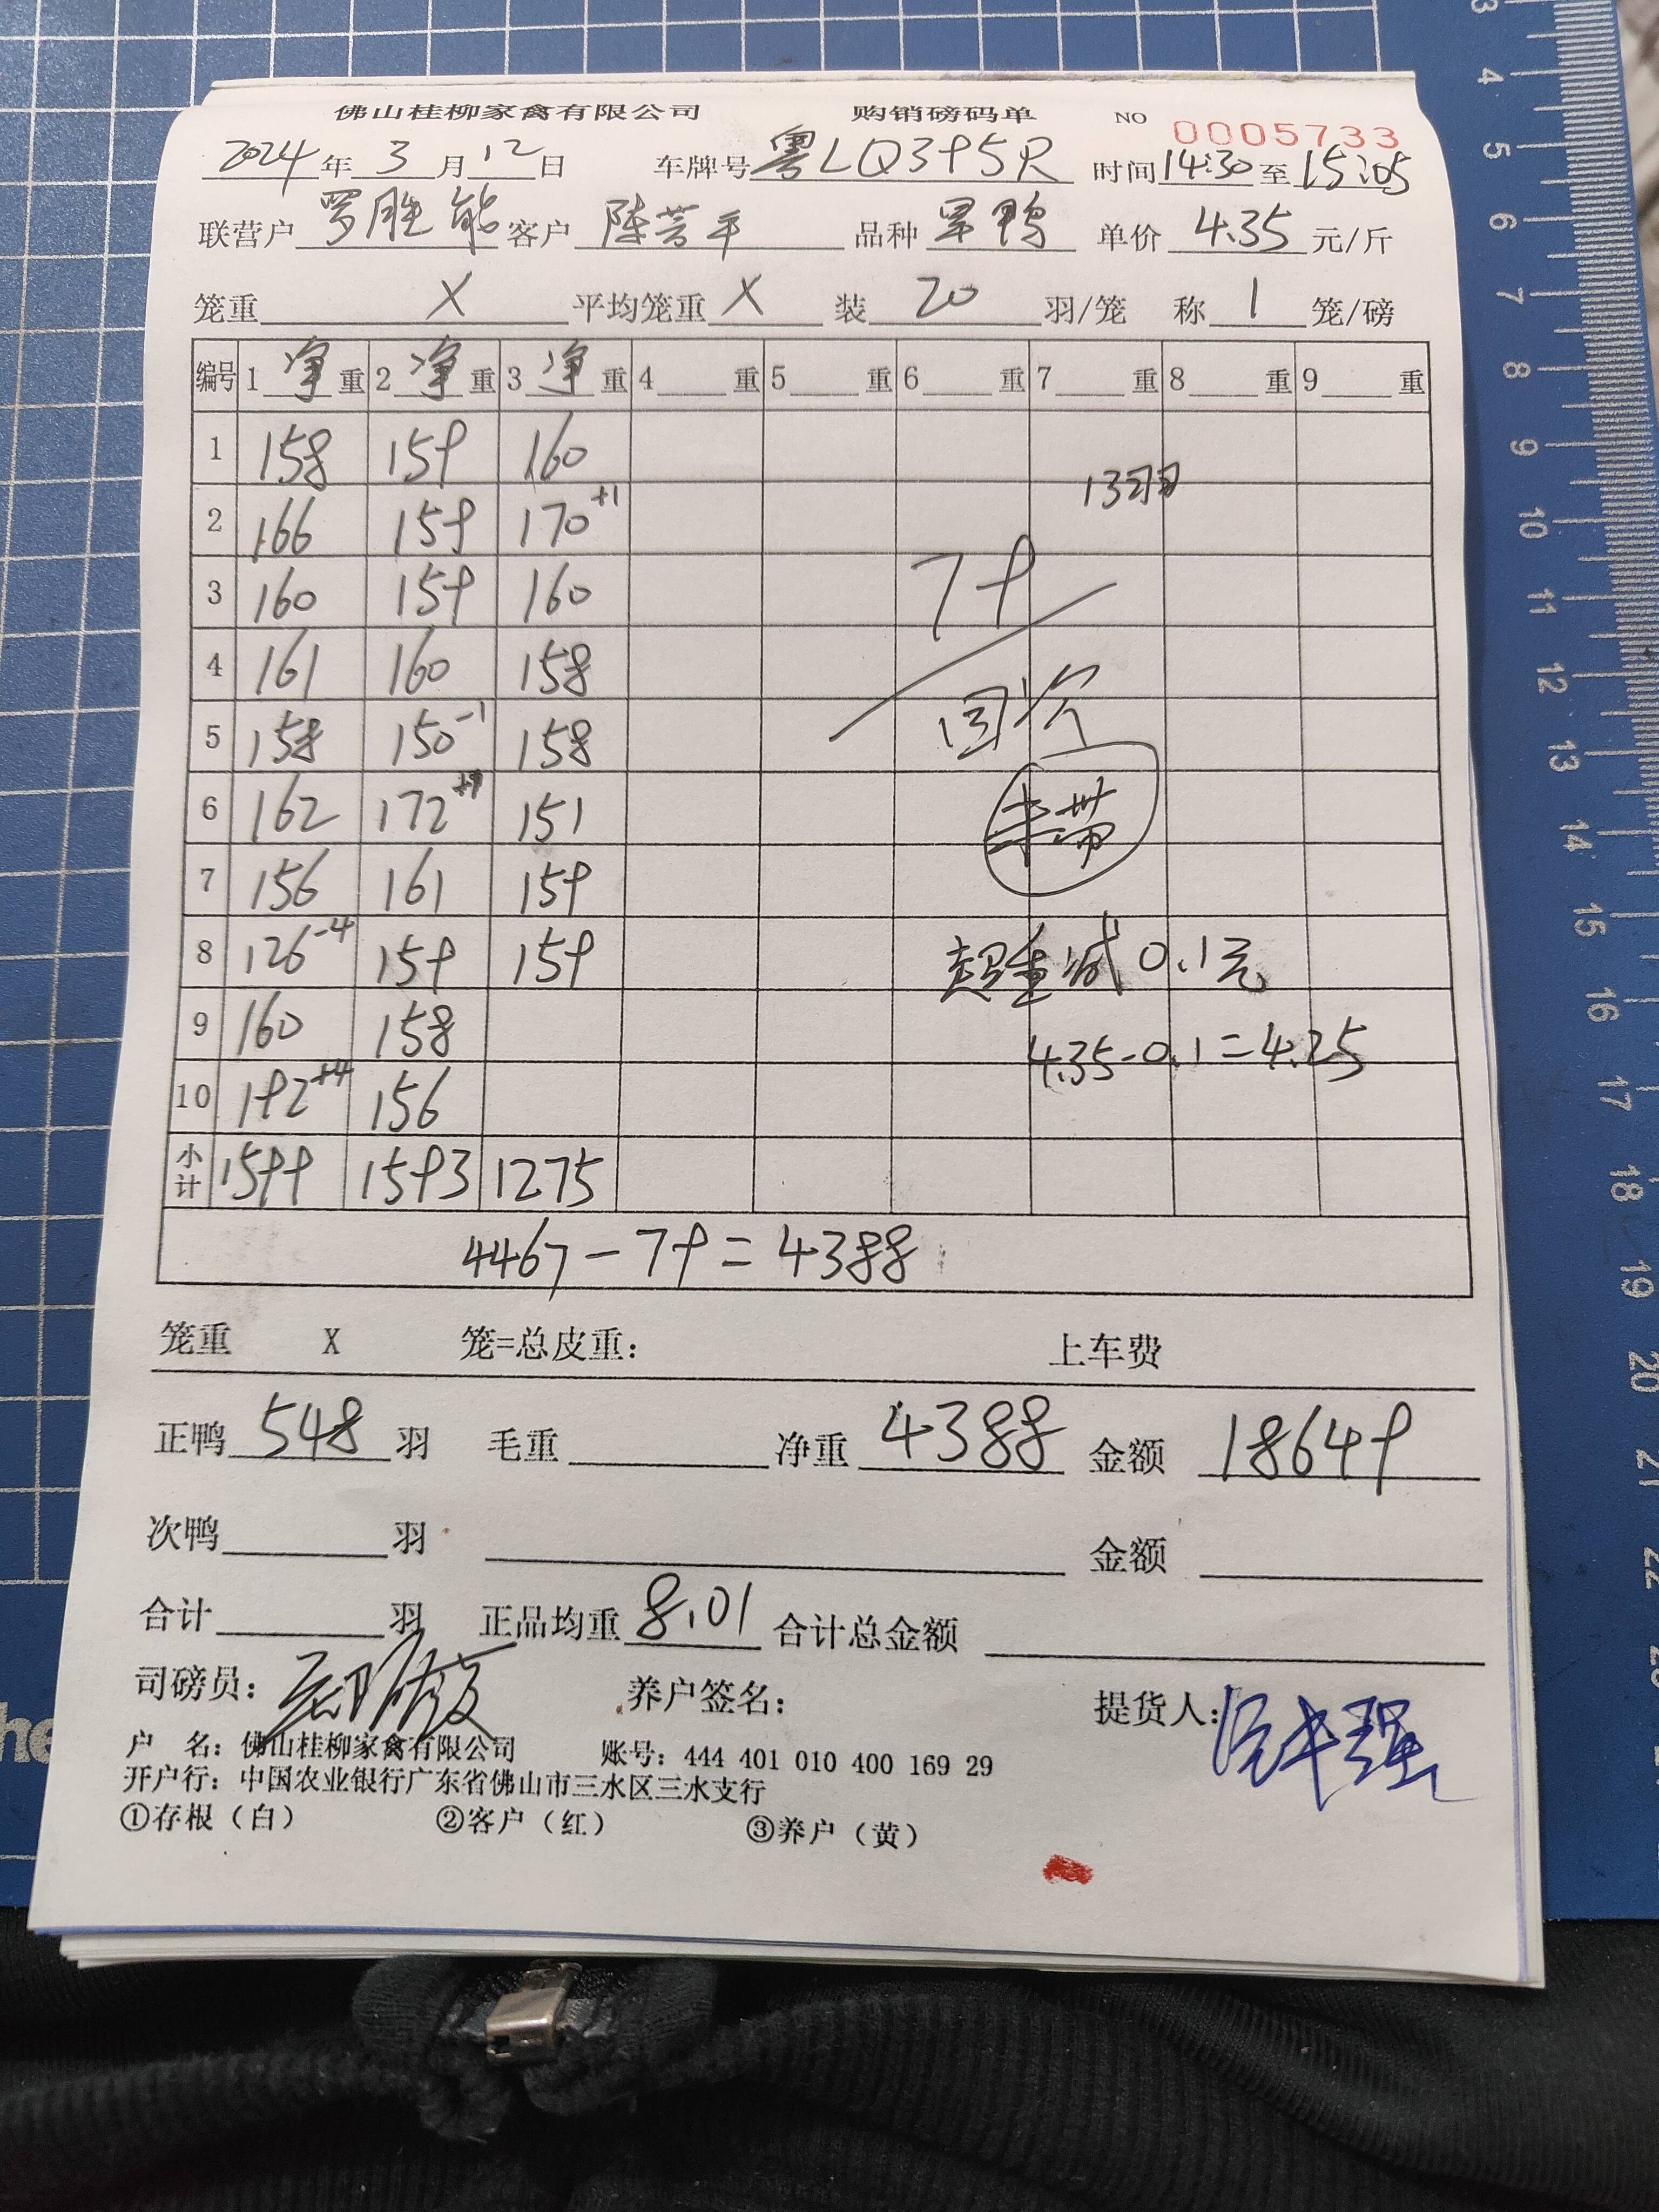 佛山桂柳家禽有限公司 购销磅码单 NO 0005733
2024年3月12日 车牌号粤LQ395R 时间14:30至15:05
联营户罗胜能客户陈芸平 品种旱鸭 单价4.35元/斤
笼重X平均笼重X 装20羽/笼 称1笼/磅
编号 1净重 2净重 3净重 4重 5重 6重 7重 8重 9重
1 158 159 160
13羽
2 166 159 170+1
3 160 159 160
79
4 161 160 158
回次
5 158 150-1 158
6 162 172+1 151
未带
7 156 161 159
8 126-4 159 159
超重减0.1元
9 160 158
4.35-0.1=4.25
10 192+4 156
小计 1599 1593 1275
4467-79=4388
笼重 X 笼=总皮重: 上车费
正鸭548羽 毛重 净重4388 金额18649
次鸭羽 金额
合计羽 正品均重8.01 合计总金额
司磅员: 养户签名: 提货人:
户 名: 佛山桂柳家禽有限公司 账号: 444 401 010 400 169 29
开户行: 中国农业银行广东省佛山市三水区三水支行
①存根(白) ②客户(红) ③养户(黄)
3
4
5
6
7
8
9
10
11
12
13
14
15
16
17
18
19
20
21
22